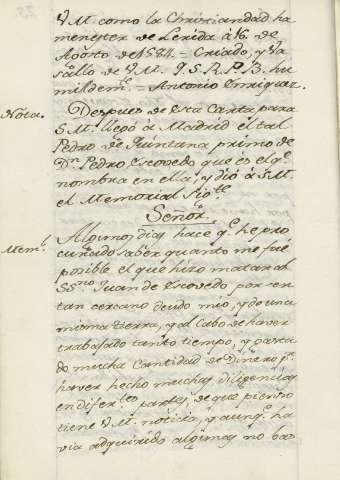 V.M. como la Christiandad ha
menester de Lerida à 16. de
Agosto de 1584 - Criado, y Va
sallo de V.M. Q.S.R.P.B. hu
mildem.te - Antonio Enriquez.
Nota. Despues de esta Carta para
S.M. llegó à Madrid el tal
Pedro de Quintana primo de
Dn. Pedro Escovedo que es el q.e
nombra en ella, y dió à S.M.
el Memorial Sig.te
Señor.
Mem.l Algunos dias hace q.e he pro
curado saber quanto me fué
posible el que hizo matar al
Ss.rio Juan de Escovedo por ser
tan cercano deudo mio, y de una
misma tierra, y al cabo de haver
trabajado tanto tiempo, y gasta
do mucha cantidad de Dinero p.r
haver hecho muchas diligencias
en difer.tes partes, de que pienso
tiene V.M. noticia, y aunq.e ha
via adquirido algunas no bas